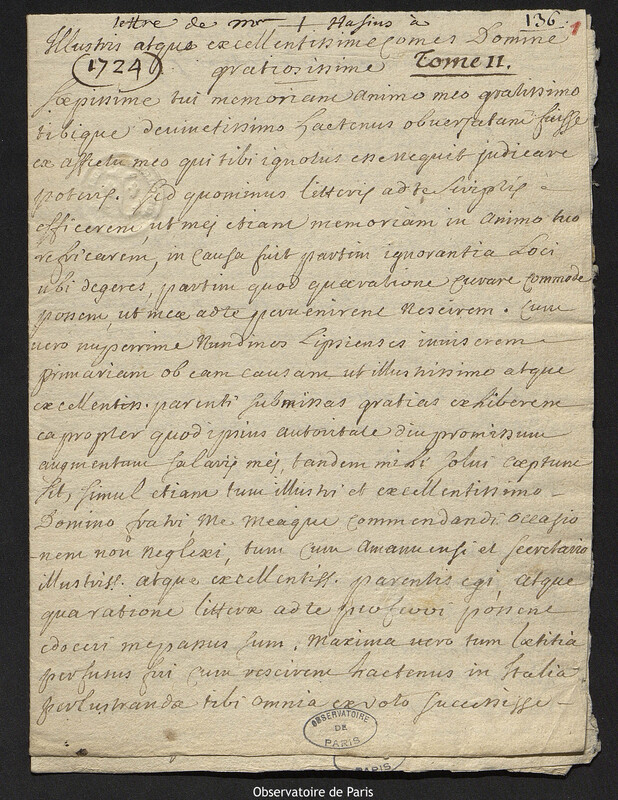 lettre de mr + Hasius à
136.
1
Illustris atque excellentissime Comes Domine
1724
gratiosissime
Tome II.
Sæpissime tui memoriam animo meo gratissimo
tibique devinctissimo hactenus obversatam fuisse
ex affectu meo qui tibi ignotus esse nequit judicare
poteris. Sed quominus litteris ad te scriptis
efficerem, ut mej etiam memoriam in animo tuo
refricarem, in causa fuit partim ignorantia Loci
ubi degeres, partim quod qua ratione curare commode
possem, ut meæ ad te pervenirent nescirem. Cum
vero nuperrime Nundinas Lipsienses inviserem
primariam ob eam causam ut illustrissimo atque
excellentiss. parenti submissas gratias exhiberem
ea propter quod ipsius autoritate diu promissum
augmentum salarij mej, tandem mihi solvi cæptum
sit, simul etiam tum illustri et excellentissimo
Domino fratri, me meaque commendandi occasio
nem non neglexi, tum cum amanuensi et secretario
illustriss. atque excellentiss. parentis egi, atque
qua ratione litteræ ad te proferri possent
edoceri me passus sum. Maxima vero tum lætitia
perfusus fui cum rescirem hactenus in Italia
perlustranda tibi omnia ex voto successisse
OBSERVATOIRE DE PARIS
PARIS
Observatoire de Paris